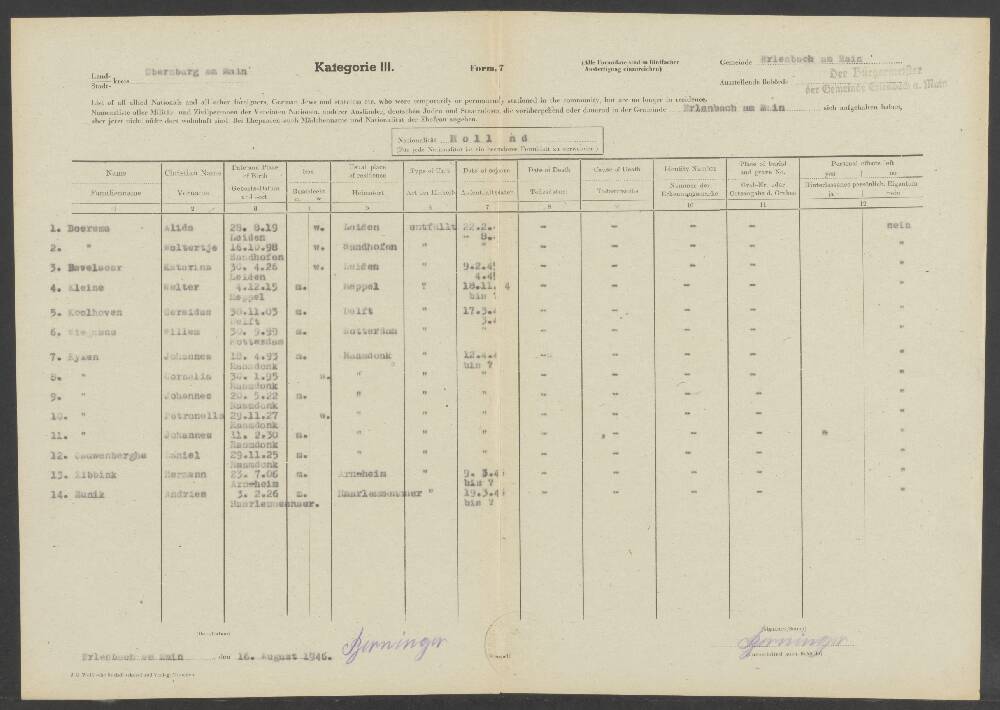 Land-
Stadt- kreis Obernburg am Main
Kategorie III.
Form. 7
(Alle Formulare sind in fünffacher
Ausfertigung einzureichen)
Gemeinde Erlenbach am Main
Ausstellende Behörde Der Bürgermeister
der Gemeinde Erlenbach a. Main
List of all allied Nationals and all other foreigners, German Jews and stateless etc. who were temporarily or permanently stationed in the community, but are no longer in residence.
Namensliste aller Militär- und Zivilpersonen der Vereinten Nationen, anderer Ausländer, deutschen Juden und Staatenlosen, die vorübergehend oder dauernd in der Gemeinde Erlenbach am Main sich aufgehalten haben,
aber jetzt nicht mehr dort wohnhaft sind. Bei Ehepaaren auch Mädchenname und Nationalität der Ehefrau angeben.
Nationalität Holl nd
(Für jede Nationalität ist ein besonderes Formblatt zu verwenden)
Name Christian Name Date and Place of Birth Sex Usual place of residence Type of Unit Date of sojourn Date of Death Cause of Death Identity Number Place of burial and grave No. Personal effects left yes no
Familienname Vorname Geburts-Datum und -ort m. w. Heimatort Todesdatum Todesursache Nummer der Erkennungsmarke Hinterlassenes persönlich. Eigentum ja nein
1 2 3 4 5 6 7 8 9 10 11 12
1. Boerema Alida 28. 8.19 w. Leiden entfällt 22.2. - - - - nein
Leiden - 8.
2. " Woltertje 16.10.98 w. Sandhofen " " - - - - "
Sandhofen
3. Bavelaar Katarina 30. 4.26 w. Leiden " 9.2.4 - - - - "
Leiden 4.4
4. Kleine Wolter 4.12.15 m. Meppel ? 18.11. 4 - - - - "
Meppel bis ?
5. Koolhoven Gerardus 30.11.03 m. Delft " 17.3. - - - - "
Delft
6. Willem 30. 9.99 m. Rotterdam " " - - - - "
Rotterdam
7. Ryken Johannes 18. 4.93 m. Raamdonk " 12.4. - - - - "
Raamdonk bis ?
8. " Cornelia 30. 1.95 w. " " " - - - - "
Raamdonk
9. " Johannes 20. 5.22 m. " " " - - - - "
Raamdonk
10. " Petronella 29.11.27 w. " " " - - - - "
Raamdonk
11. " Johannes 11. 2.30 m. " " " - - - - "
Raamdonk
12. Cauwenberghe Daniel 29.11.25 m. " " " - - - - "
Raamdonk
13. Ribbink Hermann 23. 7.06 m. Arnheim " 9. 3.4 - - - - "
Arnheim bis ?
14. Munik Andries 3. 2.26 m. Haarlemmenmer " 19.3.4 - - - - "
Haarlemmenmer. bis ?
Erlenbach am Main den 16. August 1946.
Berninger
Berninger